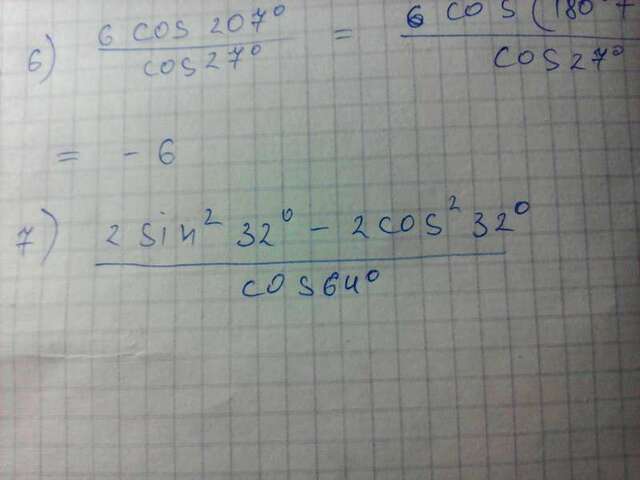 6) 6 cos 207° / cos 27° = 6 cos (180° + / cos 27°
= - 6
7) 2 sin² 32° - 2 cos² 32° / cos 64°